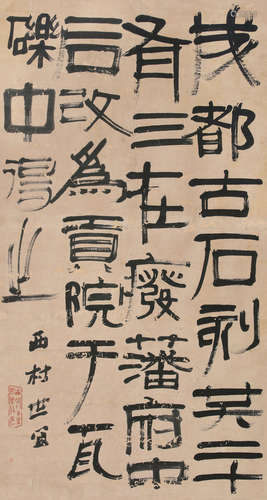 成都古石刻共二十
有三在廢藩府中
后改為貢院于瓦
礫中得之
西村